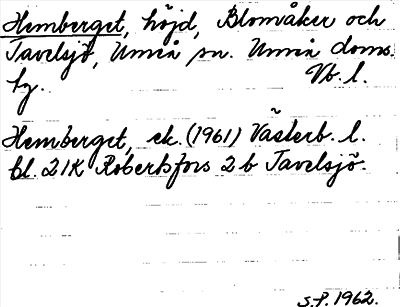 Hemberget, höjd, Blomåker och
Tavelsjö, Umeå sn. Umeå doms.
tg. Vb. l.
Hemberget, ek. (1961) Västerb. l.
bl. 21K Robertsfors 2b Tavelsjö.
S.P. 1962.